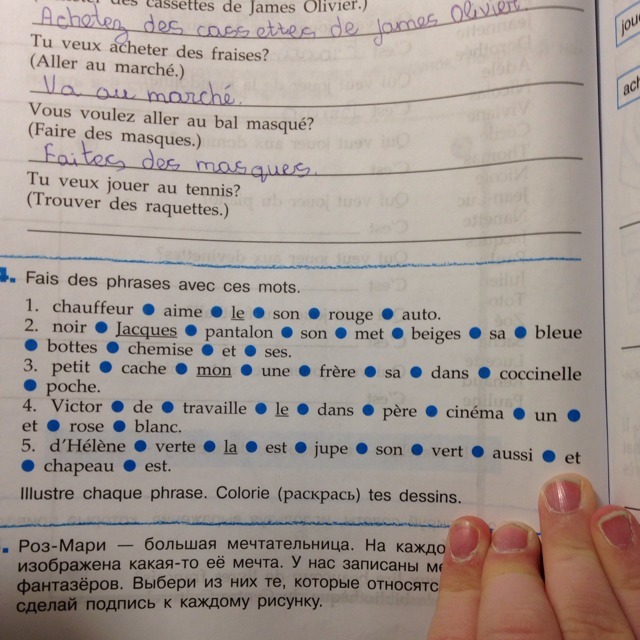 des cassettes de James Olivier.)
Achetez des cassettes de James Olivier.
Tu veux acheter des fraises?
(Aller au marché.)
Va au marché.
Vous voulez aller au bal masqué?
(Faire des masques.)
Faites des masques.
Tu veux jouer au tennis?
(Trouver des raquettes.)
4. Fais des phrases avec ces mots.
1. chauffeur ● aime ● le ● son ● rouge ● auto.
2. noir ● Jacques ● pantalon ● son ● met ● beiges ● sa ● bleue
● bottes ● chemise ● et ● ses.
3. petit ● cache ● mon ● une ● frère ● sa ● dans ● coccinelle
● poche.
4. Victor ● de ● travaille ● le ● dans ● père ● cinéma ● un ●
et ● rose ● blanc.
5. d'Hélène ● verte ● la ● est ● jupe ● son ● vert ● aussi ● et
● chapeau ● est.
Illustre chaque phrase. Colorie (раскрась) tes dessins.
Роз-Мари — большая мечтательница. На каждо
изображена какая-то её мечта. У нас записаны ме
фантазёров. Выбери из них те, которые относятс
сделай подпись к каждому рисунку.
joue
ach